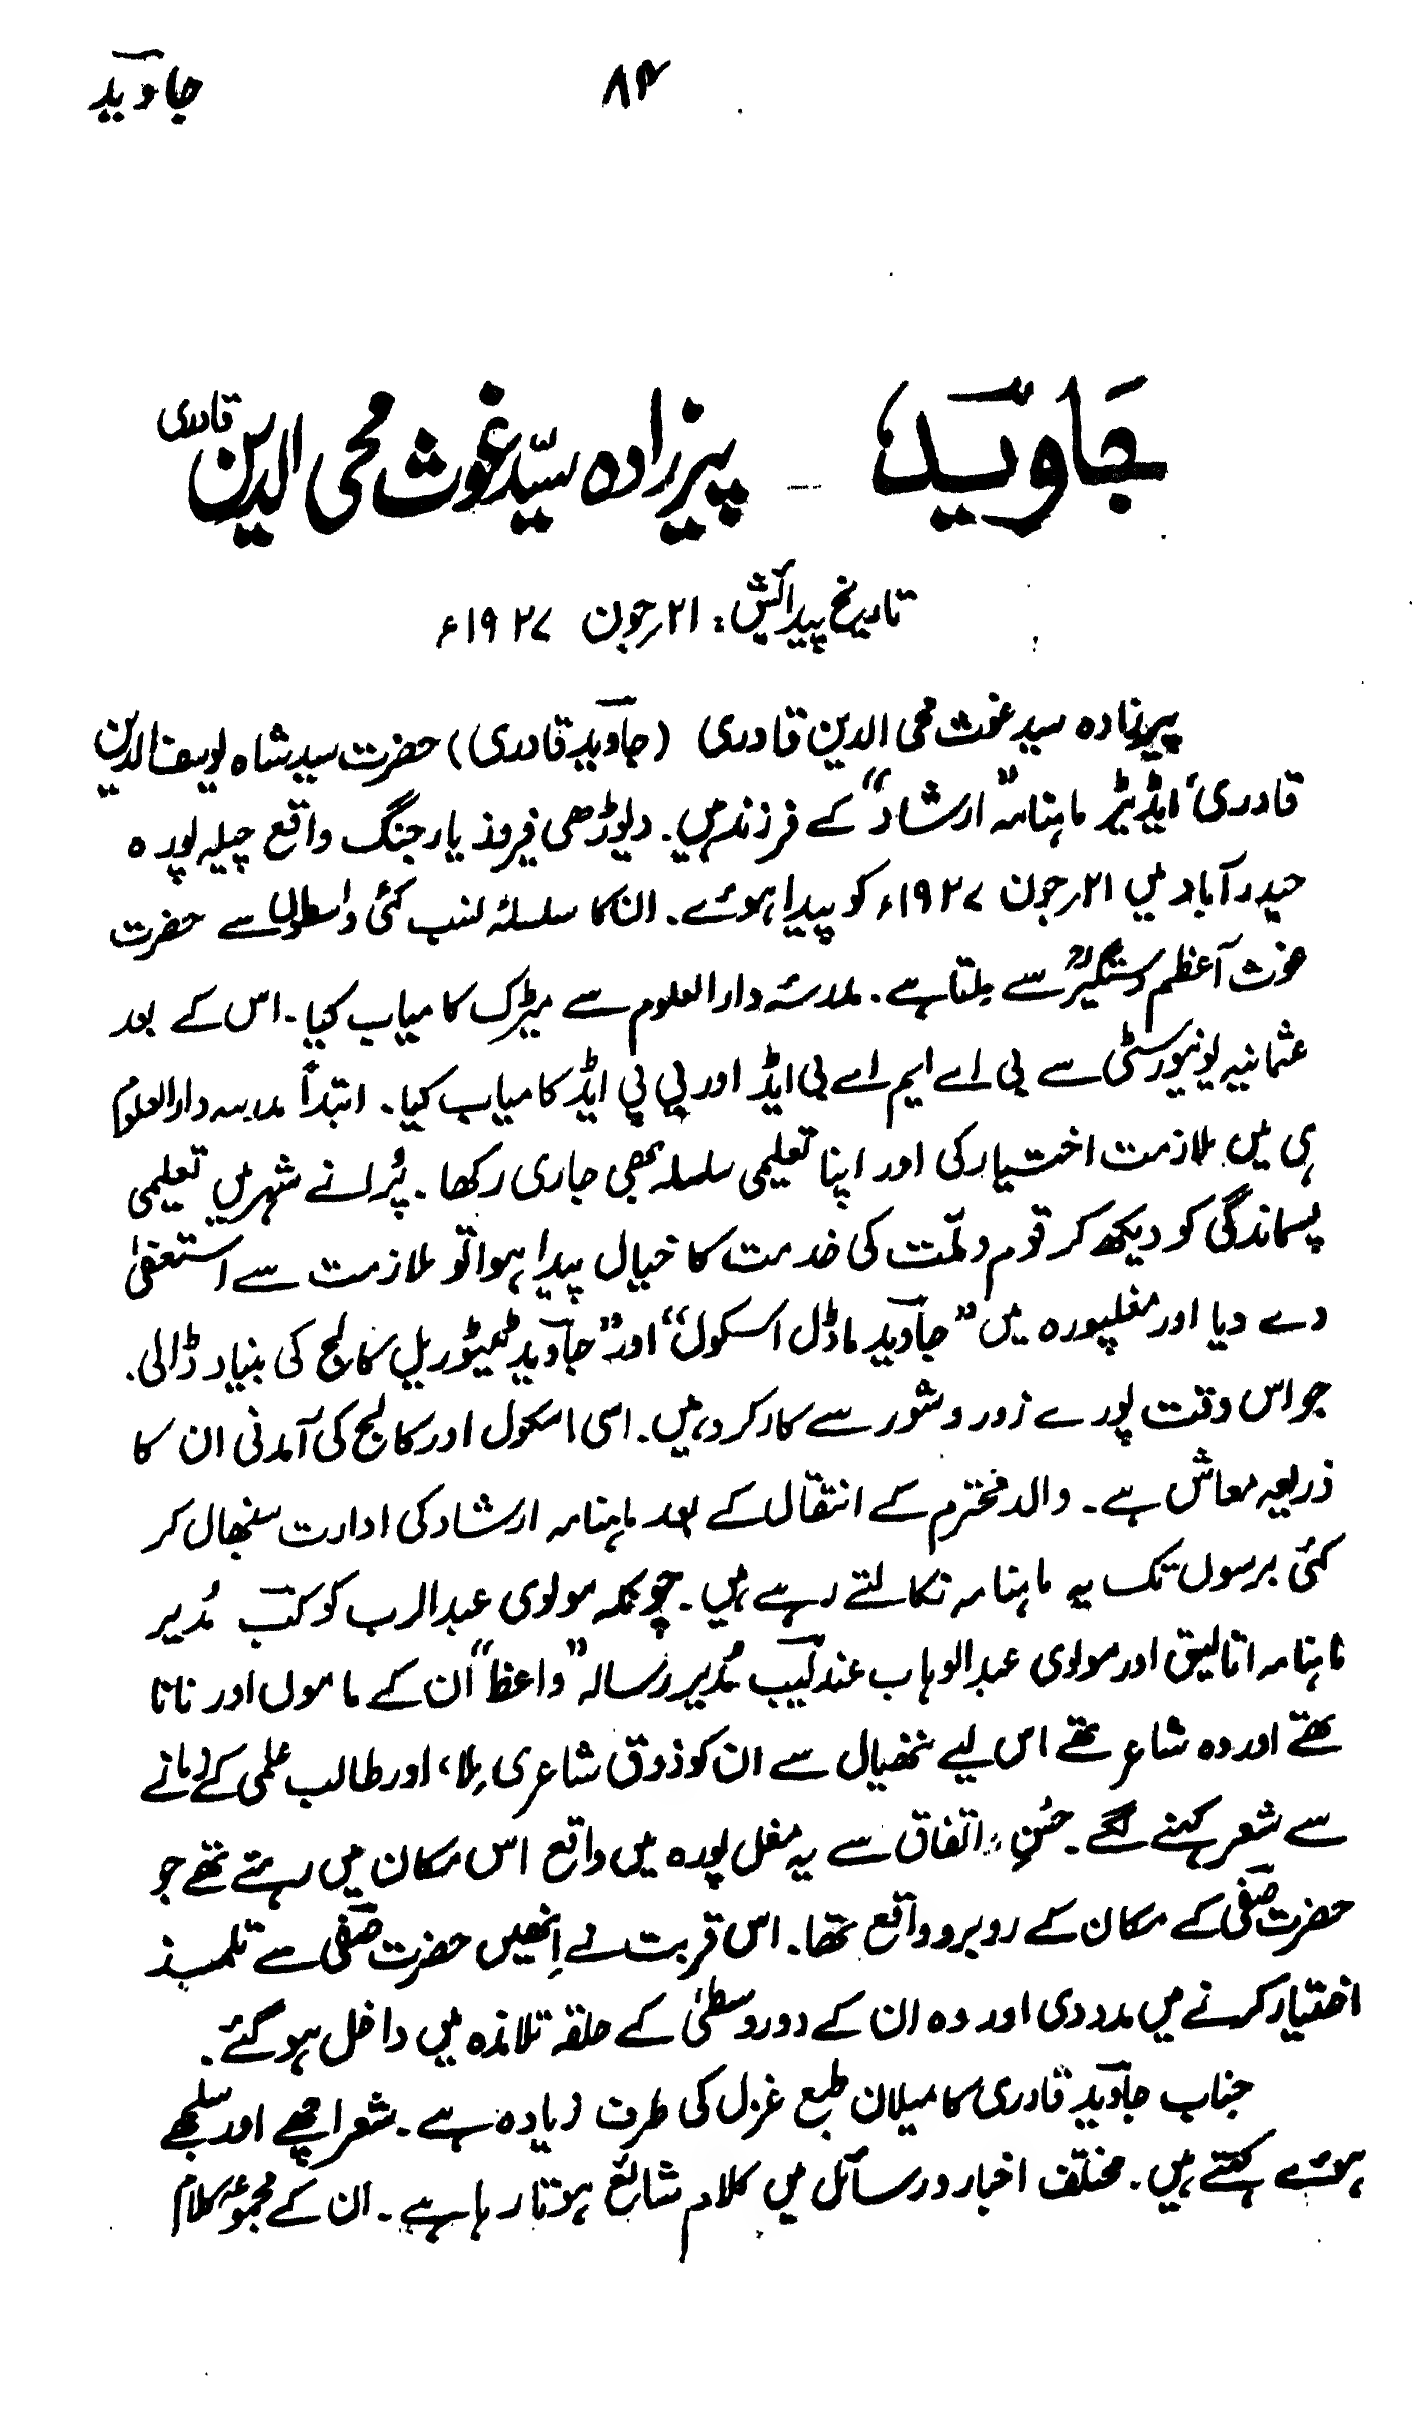 جاویدؔ
۸۴
جاویدؔ، ـ پیرزادہ سیّد غوث محی الدین قادری
تاریخ پیدائش: ۲۱؍جون ۱۹۲۷ء
پیرزادہ سید غوث محی الدین قادری (جاویدؔ قادری) حضرت سید شاہ یوسف الدین
قادری، ایڈیٹر ماہنامہ "ارشاد" کے فرزند ہیں. دیوڑھی فیروز یار جنگ واقع چیلہ پورہ
حیدرآباد میں ۲۱؍جون ۱۹۲۷ء کو پیدا ہوئے. ان کا سلسلۂ نسب کئی واسطوں سے حضرت
غوث آعظم دستگیرؒ سے ملتا ہے. مدرسہ دارالعلوم سے میٹرک کامیاب کیا۔ اس کے بعد
عثمانیہ یونیورسٹی سے بی اے ایم اے بی ایڈ اور پی پی ایڈ کامیاب کیا. ابتداً مدرسہ دارالعلوم
ہی میں ملازمت اختیار کی اور اپنا تعلیمی سلسلہ بھی جاری رکھا. پُرانے شہر میں تعلیمی
پسماندگی کو دیکھ کر قوم و ملّت کی خدمت کا خیال پیدا ہوا تو ملازمت سے استعفیٰ
دے دیا اور مغلپورہ میں "جاویدؔ ماڈل اسکول" اور "جاویدؔ ٹیٹوریل کالج کی بنیاد ڈالی.
جو اس وقت پورے زور و شور سے کارکرد ہیں. اسی اسکول اور کالج کی آمدنی ان کا
ذریعہ معاش ہے. والد محترم کے انتقال کے بعد ماہنامہ ارشاد کی ادارت سنبھال کر
کئی برسوں تک یہ ماہنامہ نکالتے رہے ہیں. چونکہ مولوی عبدالرب کوکبؔ مُدیر
ماہنامہ اتالیق اور مولوی عبدالوہاب عندلیبؔ مُدیر رسالہ "واعظ" ان کے ماموں اور نانا
تھے اور وہ شاعر تھے اس لیے ننھیال سے ان کو ذوق شاعری مِلا، اور طالب علمی کے زمانے
سے شعر کہنے لگے. حُسنِ اتفاق سے یہ مغل پورہ میں واقع اس مکان میں رہتے تھے جو
حضرت صفیؔ کے مکان کے روبرو واقع تھا. اس قربت نے اِنھیں حضرت صفیؔ سے تلمذ
اختیار کرنے میں مدد دی اور وہ ان کے دور وسطیٰ کے حلقہ تلامذہ میں داخل ہو گئے.
جناب جاویدؔ قادری کا میلان طبع غزل کی طرف زیادہ ہے. شعر اچھے اور سلجھے
ہوئے کہتے ہیں. مختلف اخبار و رسائل میں کلام شائع ہوتا رہا ہے. ان کے مجموعۂ کلام